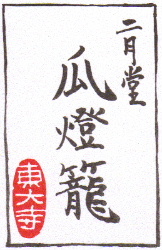 二月堂
瓜燈籠
東大寺